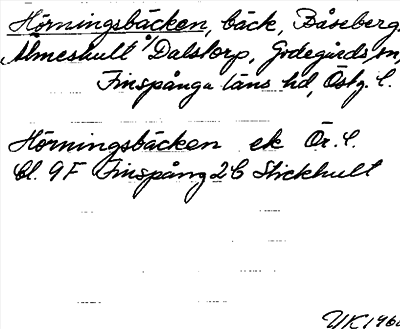 Hörningsbäcken, bäck, Båseberg,
Älmeshult o/ Dalstorp, Godegårds sn,
Finspånga läns hd, Östg. l.
Hörningsbäcken ek Ör. l.
bl. 9F Finspång 2b Stickhult
UK 196